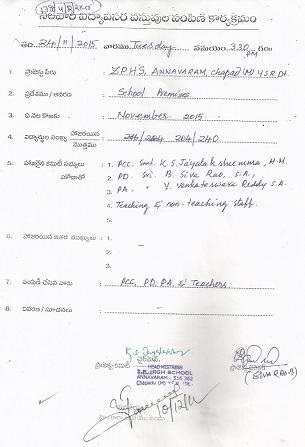 నెలవారీ విద్యావసర వస్తువుల పంపిణీ కార్యక్రమం
తేది. 24/11/2015 వారము Tuesday సమయం. 3.30 గం॥
1. ప్రాజెక్టు పేరు : Z.P.H.S, ANNAVARAM, chapad (M) Y.S.R Dt
2. ప్రదేశము / ఆవరణ : School Premises
3. ఏ నెల కొరకు : November 2015
4. విద్యార్థుల సంఖ్య హాజరయిన మొత్తము : 204/240
5. హాజరైన కమిటీ సభ్యులు హోదాతో : 1. PCC, Smt. K.S. Jayalakshmi, H.M.
2. PD. Sri. B. Siva Rao, S.A.,
3. PA. " Y. Venkateswara Reddy S.A.
4. Teaching & non-teaching staff.
6. హాజరయిన ఇతర ముఖ్యులు : 1. -
2. -
3.
7. పంపిణీ చేసిన వారు : PCC, PD, PA, & Teachers
8. వివరణ / సూచనలు : -
ప్రాజెక్టు కమిటీ చైర్మన్
HEAD MISTRESS
Z.P. HIGH SCHOOL
ANNAVARAM - 516 362
Chapadu (M)
(SIVA RAO.B)
10/12/15